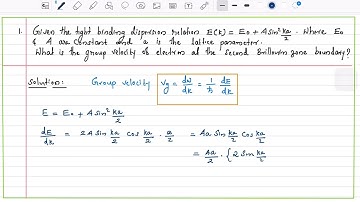 1. Given the tight binding dispersion relation E(k) = E₀ + A sin² ka/2. Where E₀
& A are constant and a is the lattice parameter.
What is the group velocity of electron at the second Brillouin zone boundary?
Solution: Group velocity vg = dω/dk = 1/ħ dE/dk
E = E₀ + A sin² ka/2
dE/dk = 2A sin ka/2 cos ka/2 · a/2 = Aa sin ka/2 cos ka/2
= Aa/2 · {2 sin ka/2